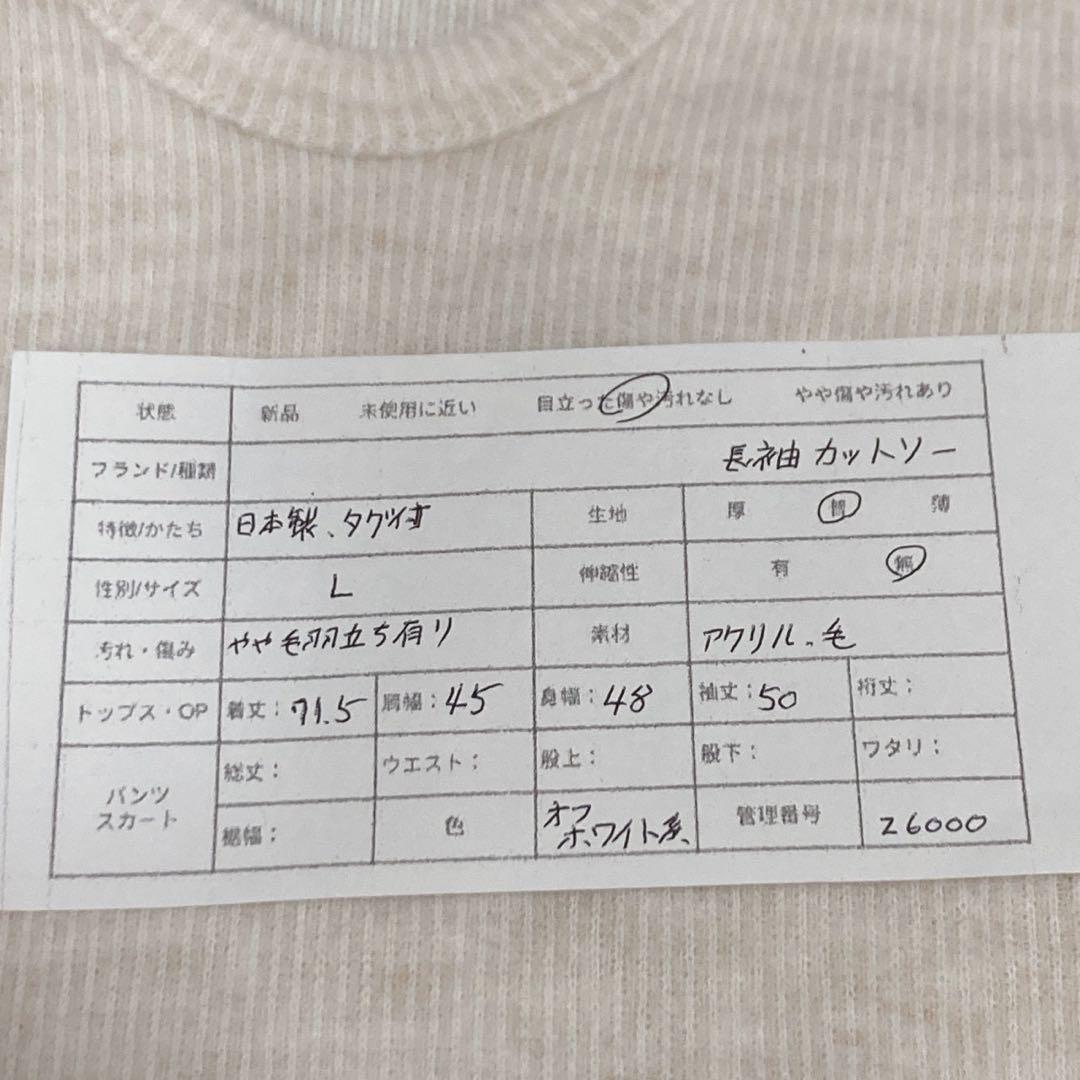 状態 新品 未使用に近い 目立った傷や汚れなし やや傷や汚れあり
ブランド/種類 長袖カットソー
特徴/かたち 日本製、タグ付 生地 厚 普 薄
性別/サイズ L 伸縮性 有 無
汚れ・傷み やや毛羽立ち有り 素材 アクリル、毛
トップス・OP 着丈：71.5 肩幅：45 身幅：48 袖丈：50 裄丈：
パンツ
スカート
総丈： ウエスト： 股上： 股下： ワタリ：
裾幅： 色 オフ
ホワイト系 管理番号 26000